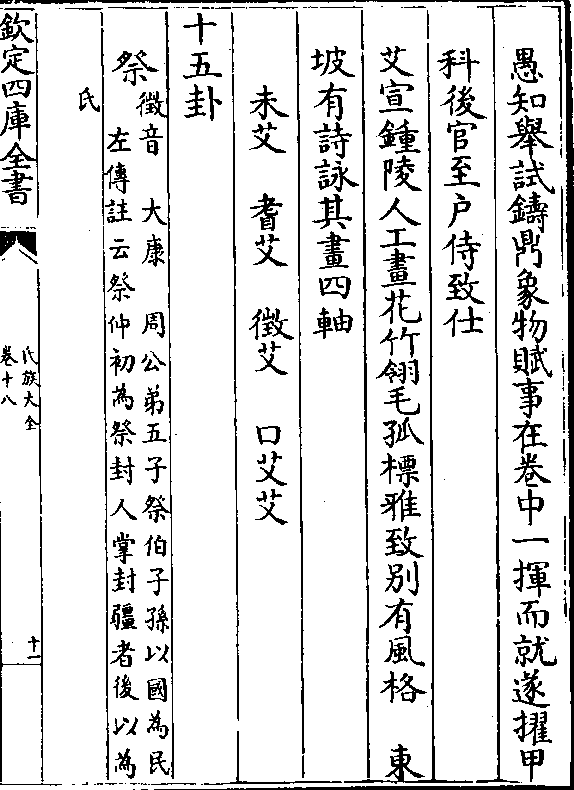 愚知舉試鑄鼎象物賦事在卷中一揮而就遂擢甲
科後官至户侍致仕
艾宣鍾陵人工畫花竹翎毛孤標雅致别有風格　東
坡有詩詠其畫四軸
未艾　耆艾　徵艾　口艾艾
十五卦
祭
徵音　大康　周公弟五子祭伯子孫以國為民
左傳註云祭仲初為祭封人掌封疆者後以為
氏
欽定四庫全書
氏族大全
卷十八
十一